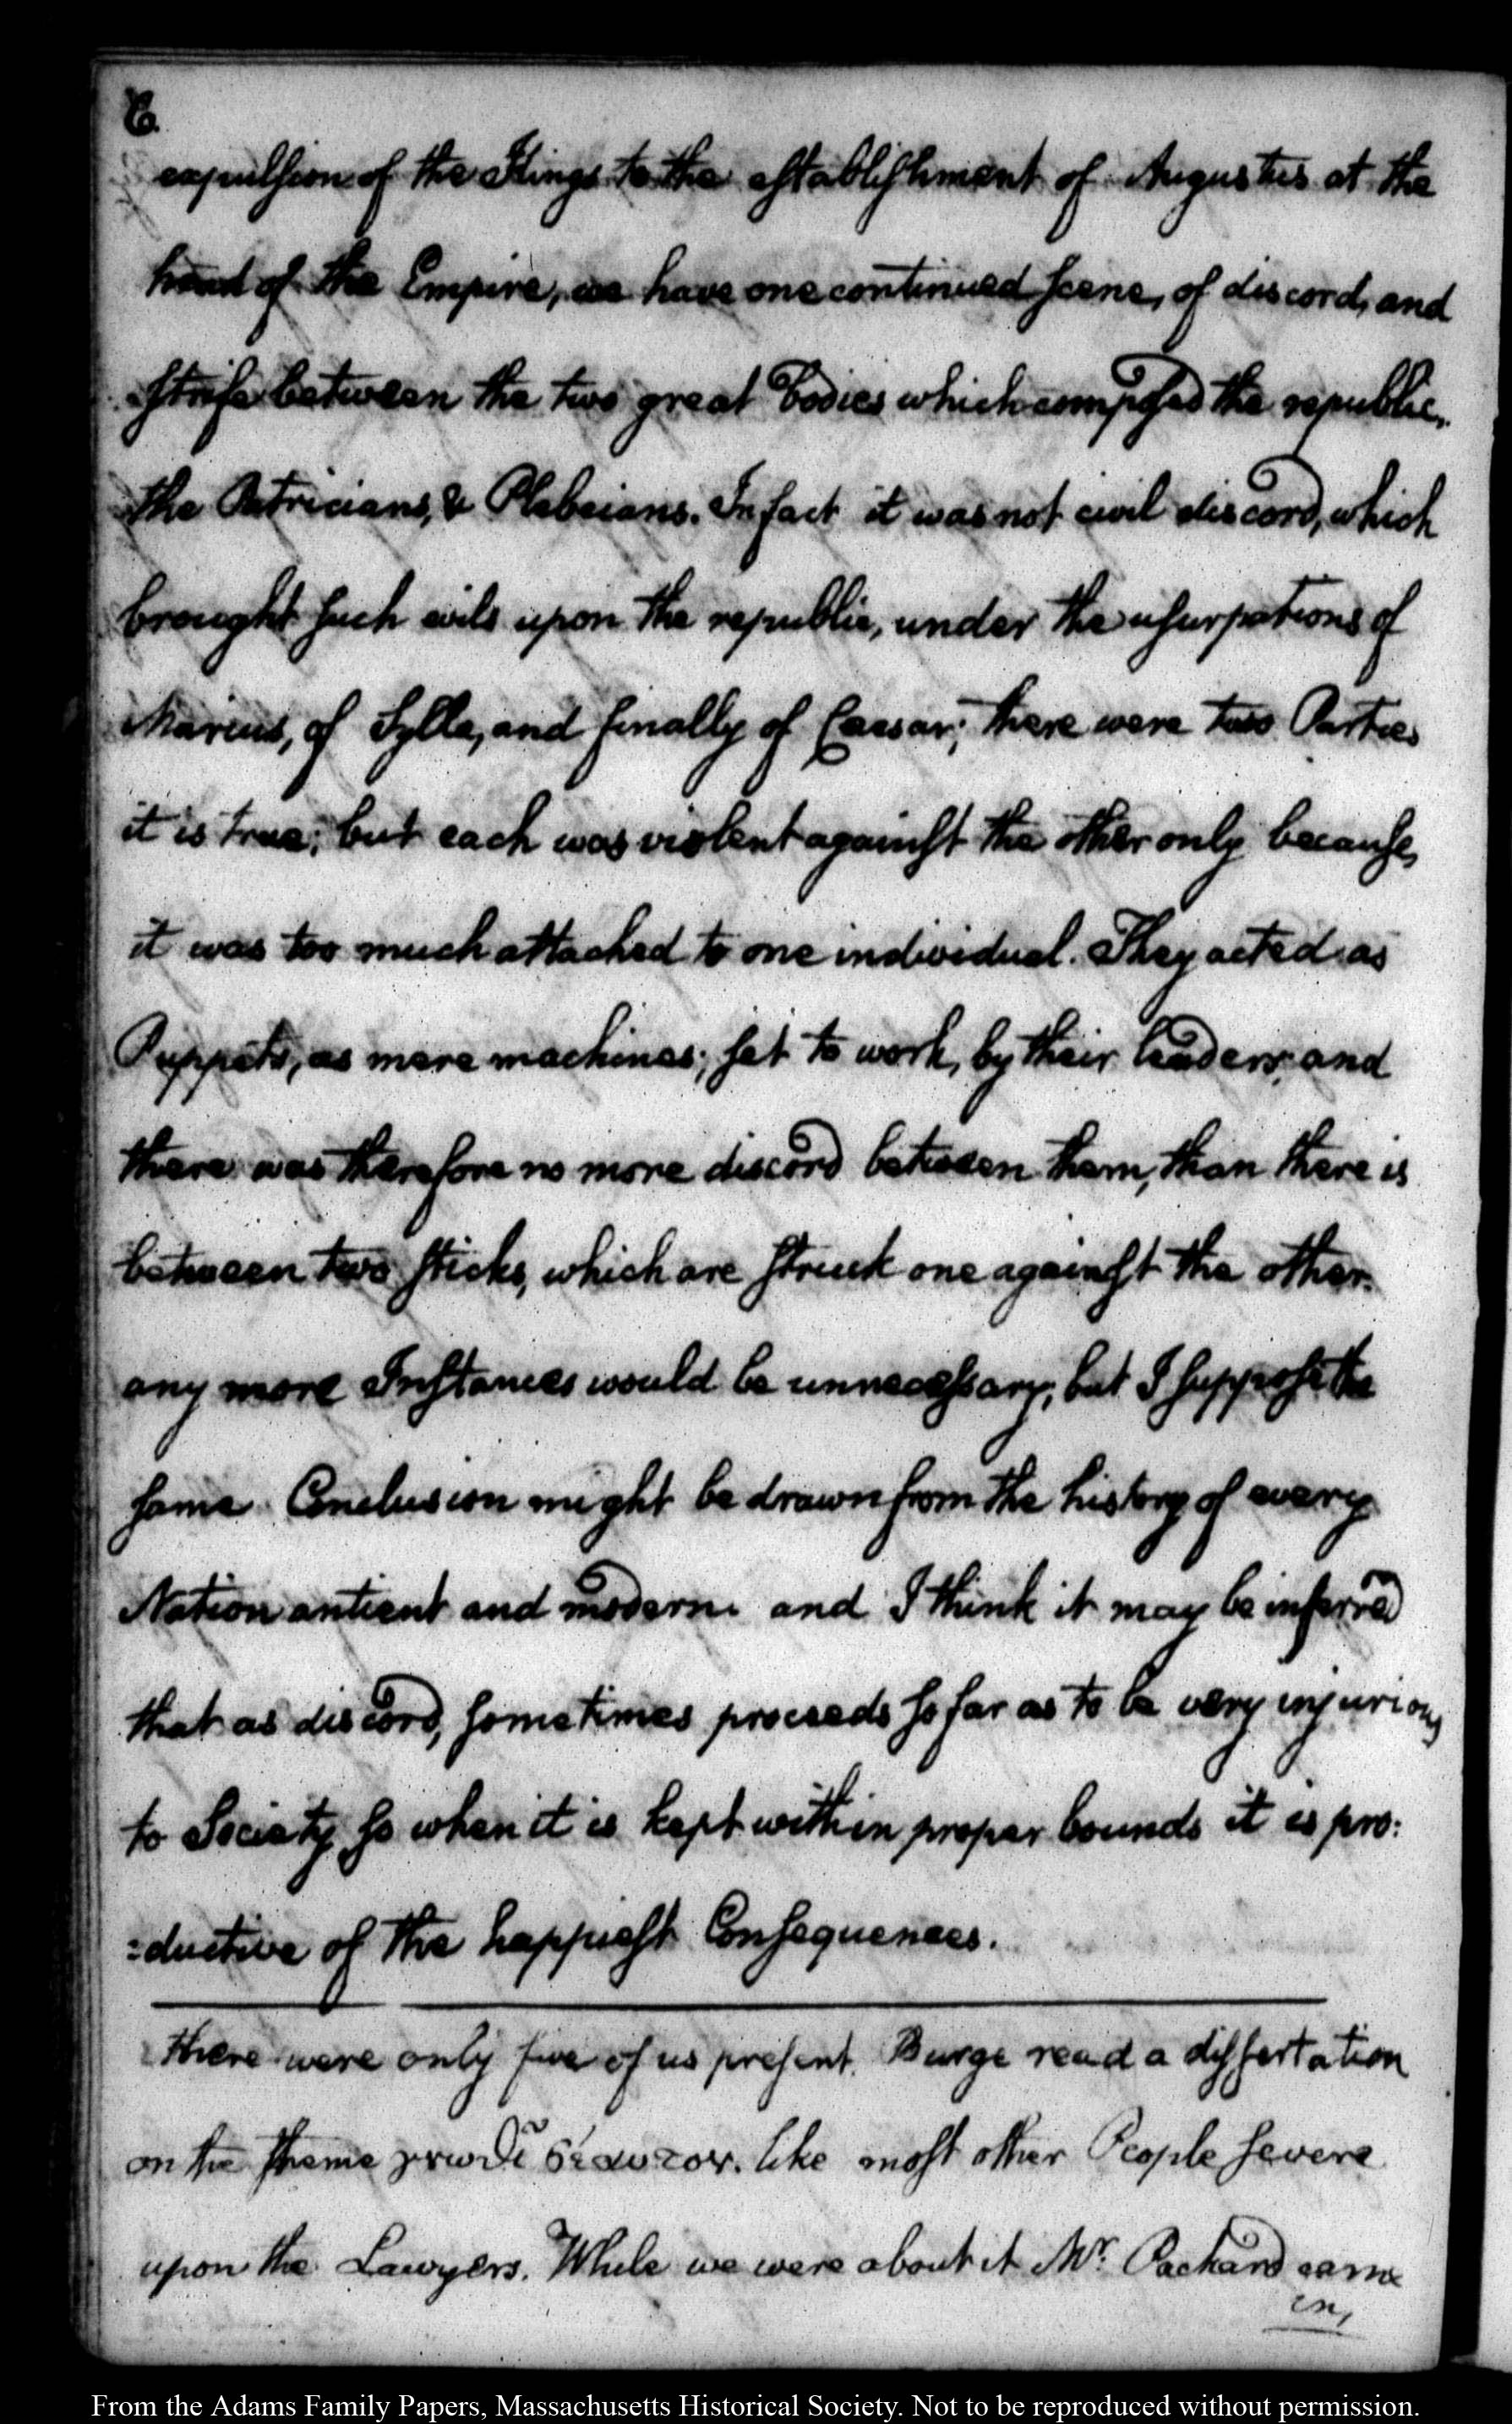 6.
expulsion of the Kings to the establishment of Augustus at the
head of the Empire, we have one continued scene, of discord, and
strife between the two great bodies which composed the republic,
the Patricians, & Plebeians. In fact it was not civil discord, which
brought such evils upon the republic, under the usurpations of
Marius, of Sylla, and finally of Caesar; there were two Parties
it is true; but each was violent against the other only because,
it was too much attached to one individual. They acted as
Puppets, as mere machines; set to work, by their leaders, and
there was therefore no more discord between them, than there is
between two sticks, which are struck one against the other.
any more Instances would be unnecessary, but I suppose the
same Conclusion might be drawn from the history of every
Nation antient and modern and I think it may be inferred
that as discord, sometimes proceeds so far as to be very injurious
to Society, so when it is kept within proper bounds it is pro:
:ductive of the happiest Consequences.
there were only five of us present. Burge read a dissertation
on the theme γνωθι σεαυτον. like most other People severe
upon the Lawyers. While we were about it Mr. Packard came
in,
From the Adams Family Papers, Massachusetts Historical Society. Not to be reproduced without permission.